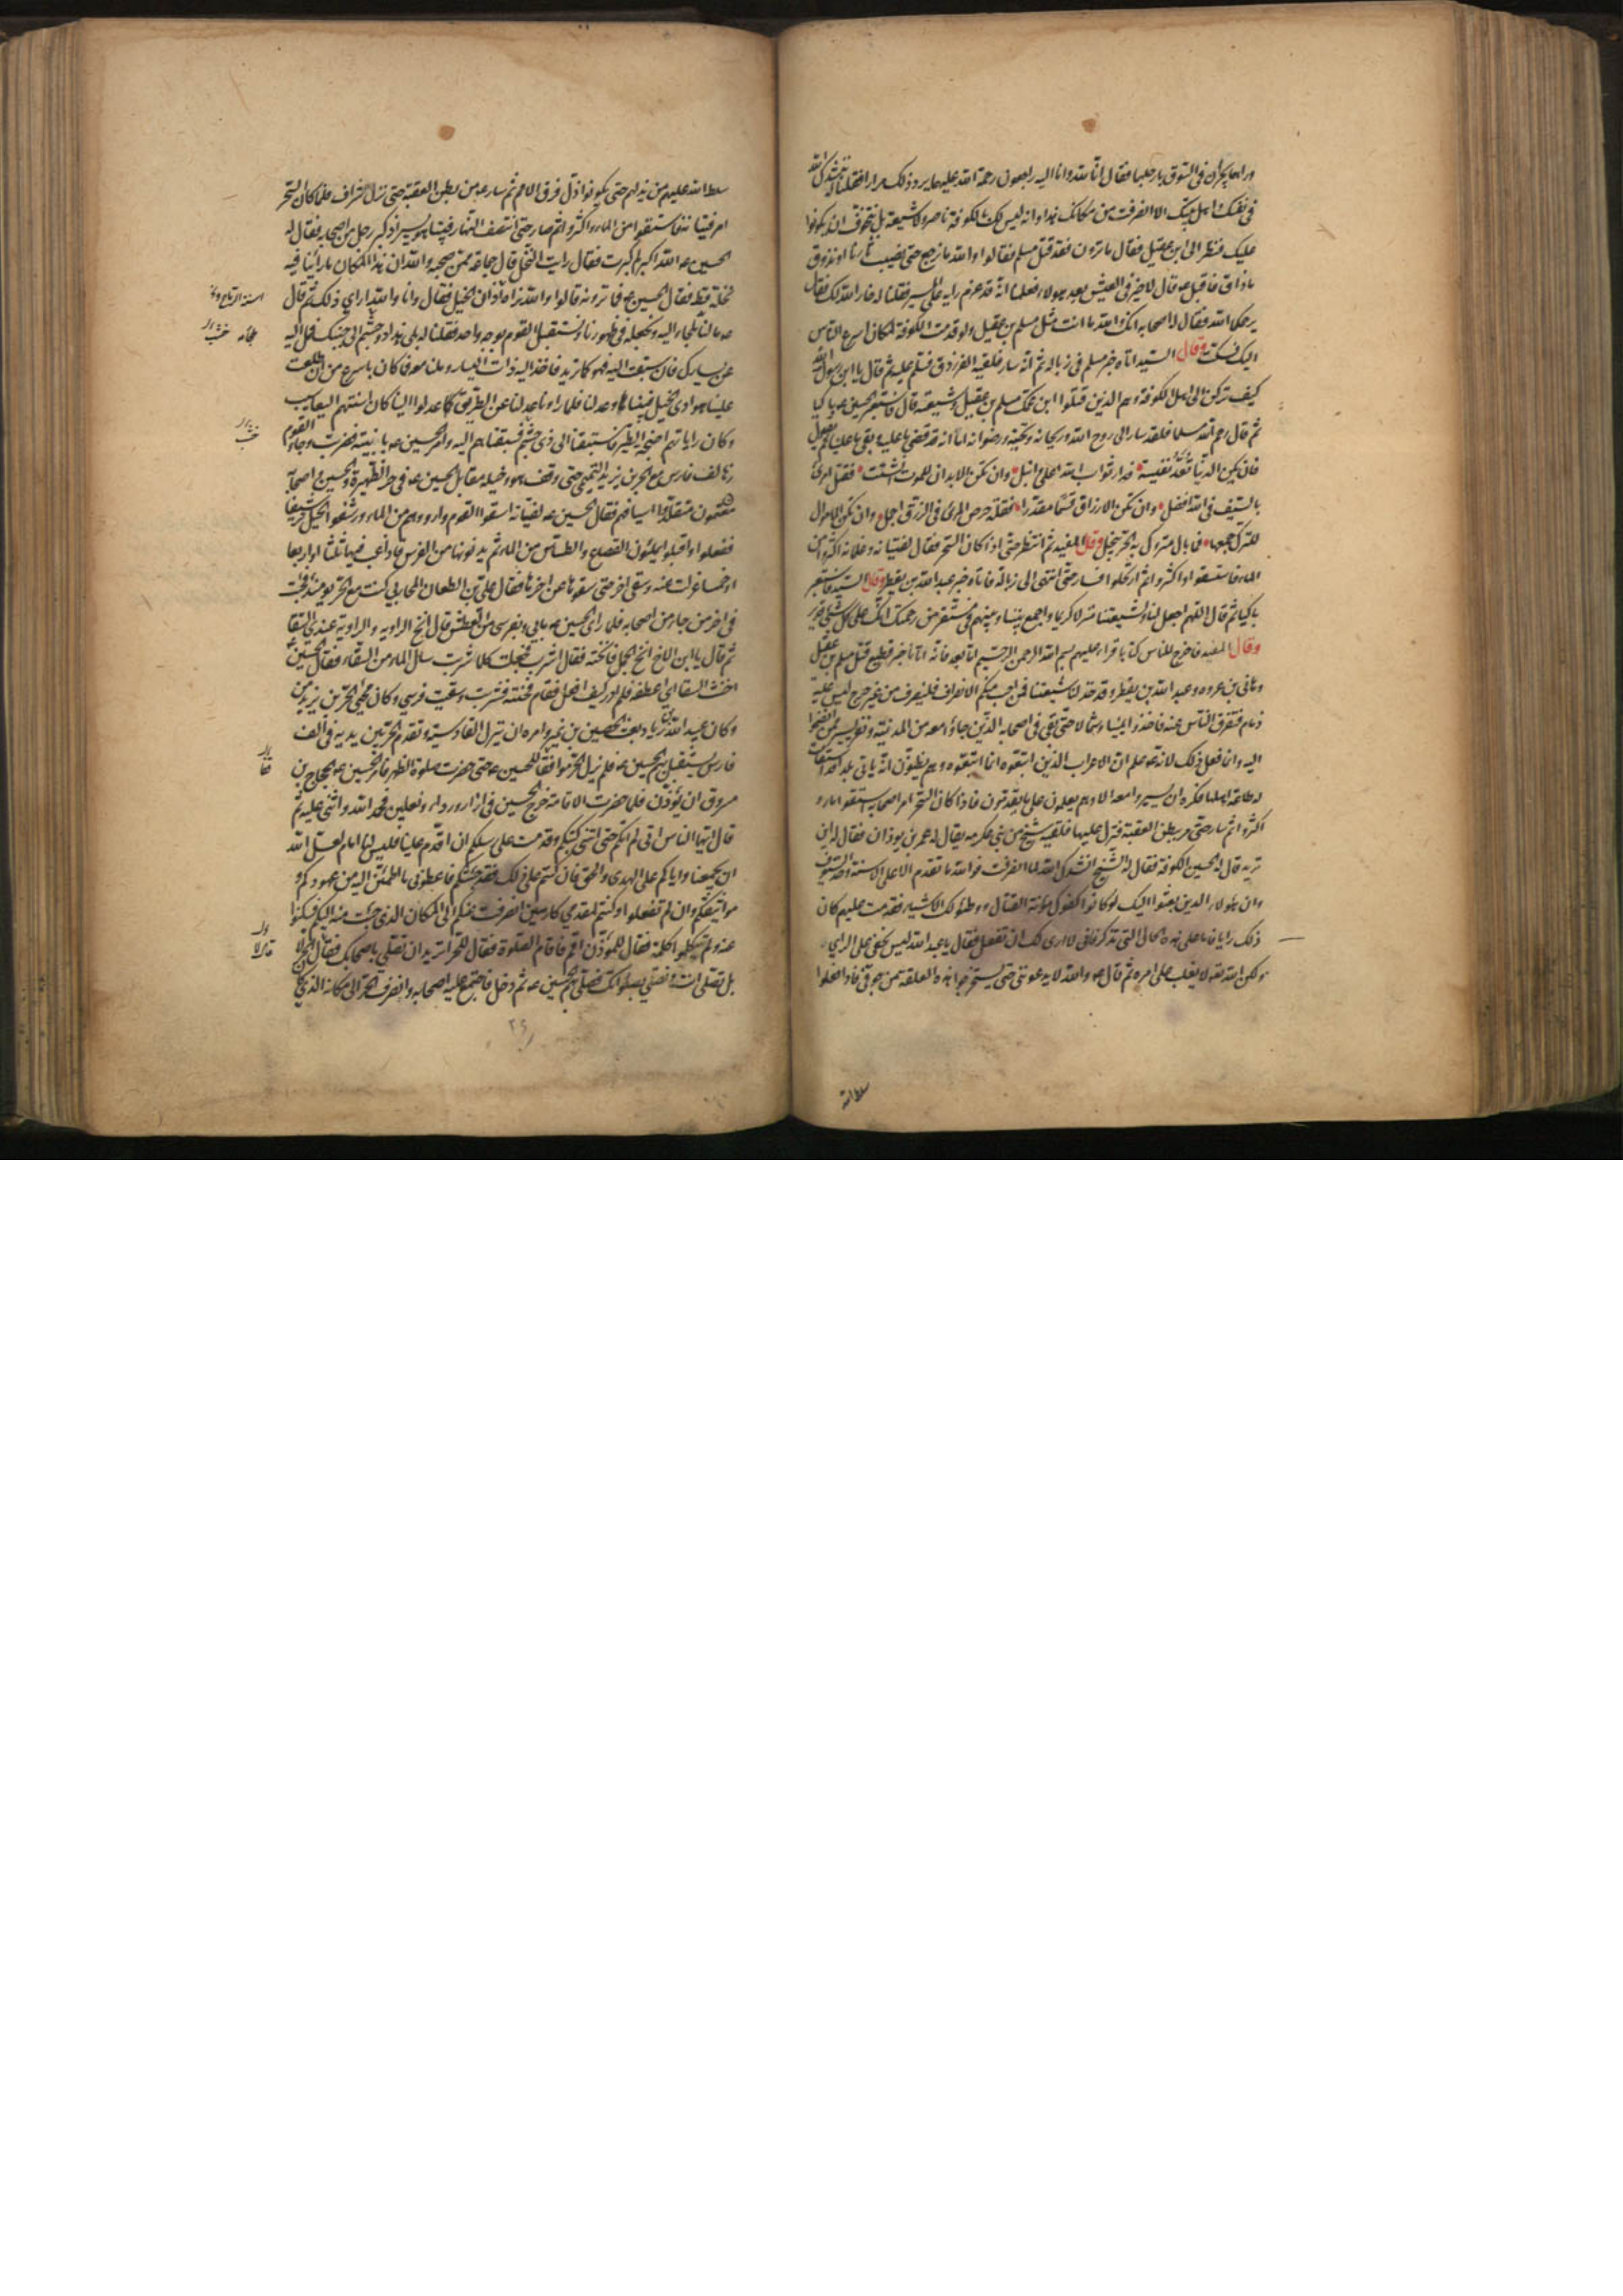 ورايهما يجران في السوق بارجلهما فقال انا لله وانا اليه راجعون رحمة الله عليهما يردد ذلك مرارا فقلنا له ننشدك الله
في نفسك واهل بيتك الا انصرفت من مكانك هذا وانه ليس لك بالكوفة ناصر ولا شيعة بل نتخوف ان يكونوا
عليك فنظر الى بني عقيل فقال ما ترون فقد قتل مسلم فقالوا والله ما نرجع حتى نصيب ثارنا او نذوق
ما ذاق فاقبل ع وقال لا خير في العيش بعد هؤلاء فعلمنا انه قد عزم رايه على المسير فقلنا له خار الله لك فقال
يرحمكما الله فقال له اصحابه انك والله ما انت مثل مسلم بن عقيل ولو قدمت الكوفة لكان اسرع الناس
اليك فسكت وقال السيد اتاه خبر مسلم في زبالة ثم انه سار فلقيه الفرزدق فسلم عليه ثم قال يا ابن رسول الله
كيف تركن الى اهل الكوفة وهم الذين قتلوا ابن عمك مسلم بن عقيل وشيعته قال فاستعبر الحسين ع باكيا
ثم قال رحم الله مسلما فلقد سار الى روح الله وريحانه وتحيته ورضوانه اما انه قد قضى ما عليه وبقى ما علينا ثم يقول
فان تكن الدنيا تعد نفيسة فدار ثواب الله اعلى وانبل وان تكن الابدان للموت انشئت فقتل امرئ
بالسيف في الله افضل وان تكن الارزاق قسما مقدرا فقلة حرص المرء في الرزق اجمل وان تكن الاموال
للترك جمعها فما بال متروك به الحر يبخل وقال المفيد ثم انتظر حتى اذا كان السحر فقال لفتيانه وغلمانه اكثروا من
الماء فاستقوا واكثروا ثم ارتحلوا فسار حتى انتهى الى زبالة فاتاه خبر عبد الله بن يقطر وقال السيد فاستعبر
باكيا ثم قال اللهم اجعل لنا ولشيعتنا منزلا كريما واجمع بيننا وبينهم في مستقر من رحمتك انك على كل شيء قدير
وقال المفيد فاخرج للناس كتابا قراء عليهم بسم الله الرحمن الرحيم اما بعد فانه اتانا خبر فظيع قتل مسلم بن عقيل
وهاني بن عروه وعبد الله بن يقطر وقد خذلنا شيعتنا فمن احب منكم الانصراف فلينصرف من غير حرج ليس عليه
ذمام فتفرق الناس عنه فاخذوا يمينا وشمالا حتى بقي في اصحابه الذين جاؤا معه من المدينة ونفر يسير ممن انضموا
اليه وانما فعل ذلك لانه ع علم ان الاعراب الذين اتبعوه انما اتبعوه وهم يظنون انه ياتي بلدا قد استقامت
له طاعة اهلها فكره ان يسيروا معه الا وهم يعلمون على ما يقدمون فلما كان السحر امر اصحابه فاستقوا ماء و
اكثروا ثم سار حتى مر ببطن العقبة فنزل عليها فلقيه شيخ من بني عكرمه يقال له عمر بن يوذان فقال له اين
تريد قال له الحسين الكوفة فقال له الشيخ انشدك الله لما انصرفت فوالله ما تقدم الا على الاسنة وحد السيوف
وان هؤلاء الذين بعثوا اليك لو كانوا كفوك مؤنة القتال ووطئوا لك الاشياء فقدمت عليهم كان
ذلك رايا فاما على هذه الحال التي تذكر فاني لا ارى لك ان تفعل فقال يا عبد الله ليس يخفى على الراي
ولكن الله تعالى لا يغلب على امره ثم قال ع والله لا يدعونني حتى يستخرجوا هذه العلقة من جوفي فاذا فعلوا
سلط الله
سلط الله عليهم من يذلهم حتى يكونوا اذل فرق الامم ثم سار ع من بطن العقبة حتى نزل شراف فلما كان السحر
امر فتيانه فاستقوا من الماء واكثروا ثم سار حتى انتصف النهار فبينا هو يسير اذ كبر رجل من اصحابه فقال له
الحسين ع الله اكبر لم كبرت فقال رايت النخل قال جماعة ممن صحبه والله ان هذا المكان ما راينا فيه
نخلة قط فقال الحسين ع فما ترونه قالوا والله نراه اذان الخيل فقال وانا والله ارى ذلك ثم قال
ع ما لنا ملجاء نلجاء اليه ونجعله في ظهورنا ونستقبل القوم بوجه واحد فقلنا له بلى هذا ذو جشم الى جنبك فمل اليه
عن يسارك فان سبقت اليه فهو كما تريد فاخذ اليه ذات اليسار وملنا معه فما كان باسرع من ان طلعت
علينا هوادي الخيل فبيناها وعدلنا فلما راونا عدلنا عن الطريق عدلوا الينا كان اسنتهم اليعاسيب
وكان راياتهم اجنحة الطير فاستبقنا الى ذي جشم فسبقناهم اليه وامر الحسين ع بابنيته فضربت وجاء القوم
زهاء الف فارس مع الحر بن يزيد التميمي حتى وقف هو وخيله مقابل الحسين ع في حر الظهيرة والحسين واصحابه
معتمون متقلدوا اسيافهم فقال الحسين ع لفتيانه اسقوا القوم وارووهم من الماء ورشفوا الخيل ترشيفا
ففعلوا واقبلوا يملئون القصاع والطساس من الماء ثم يدنونها من الفرس فاذا عب فيها ثلثا او اربعا
او خمسا عزلت عنه وسقي اخر حتى سقوها عن اخرها فقال علي بن الطعان المحاربي كنت مع الحر يومئذ فجئت
في اخر من جاء من اصحابه فلما راى الحسين ع ما بي وبفرسي من العطش قال انخ الراوية والراوية عندي السقا
ثم قال يا ابن الاخ انخ الجمل فانخته فقال اشرب فجعلت كلما شربت سال الماء من السقاء فقال الحسين
اخنث السقا اي اعطفه فلم ادر كيف افعل فقام فخنثه فشربت وسقيت فرسي وكان مجيء الحر بن يزيد من
وكان عبيد الله بن زياد بعث الحصين بن نمير وامره ان ينزل القادسية وتقدم الحر بين يديه في الف
فارس يستقبل بهم الحسين ع فلم يزل الحر موافقا للحسين ع حتى حضرت صلوة الظهر فامر الحسين ع الحجاج بن
مسروق ان يؤذن فلما حضرت الاقامة خرج الحسين في ازار ورداء ونعلين فحمد الله واثنى عليه ثم
قال ايها الناس اني لم اتكم حتى اتتني كتبكم وقدمت على رسلكم ان اقدم علينا فليس لنا امام لعل الله
ان يجمعنا واياكم على الهدى والحق فان كنتم على ذلك فقد جئتكم فاعطوني ما اطمئن اليه من عهودكم و
مواثيقكم وان لم تفعلوا او كنتم لمقدمي كارهين انصرفت عنكم الى المكان الذي جئت منه اليكم فسكتوا
عنه ولم يتكلموا كلمة فقال للمؤذن اقم فاقام الصلوة فقال للحر اتريد ان تصلي باصحابك فقال الحر لا
بل تصلي انت ونصلي بصلوتك فصلى بهم الحسين ع ثم دخل فاجتمع عليه اصحابه وانصرف الحر الى مكانه الذي